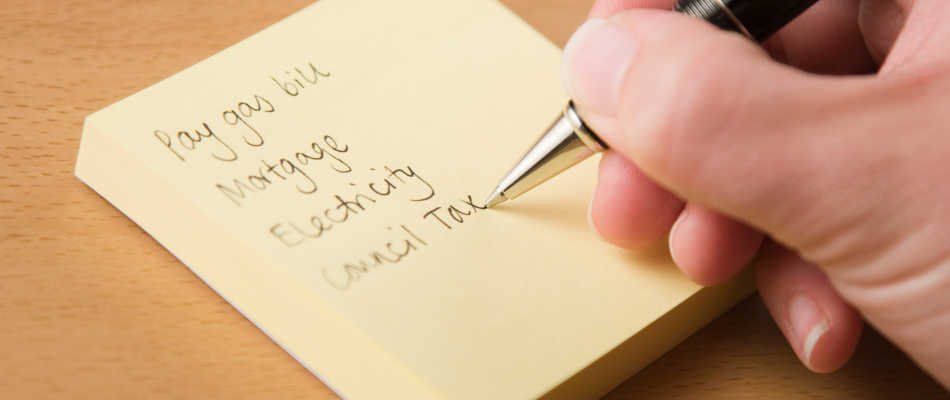 Pay gas bill
Mortgage
Electricity
Council Tax